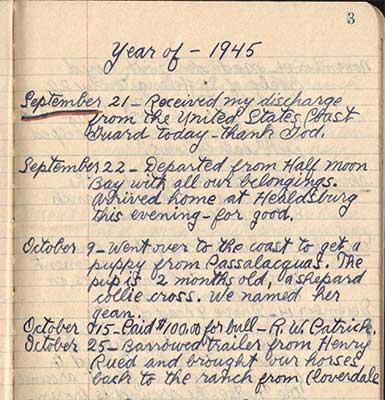 3
Year of - 1945
September 21 - Received my discharge
from the United States Coast
Guard today - thank God.
September 22 - Departed from Half Moon
Bay with all our belongings.
Arrived home at Healdsburg
this evening - for good.
October 9 - Went over to the coast to get a
puppy from Passalacquas. The
pup is 2 months old, a shepard
collie cross. We named her
Jean.
October 15 - Paid $100.00 for bull - R. W. Patrick.
October 25 - Barrowed trailer from Henry
Rued and brought our horses
back to the ranch from Cloverdale